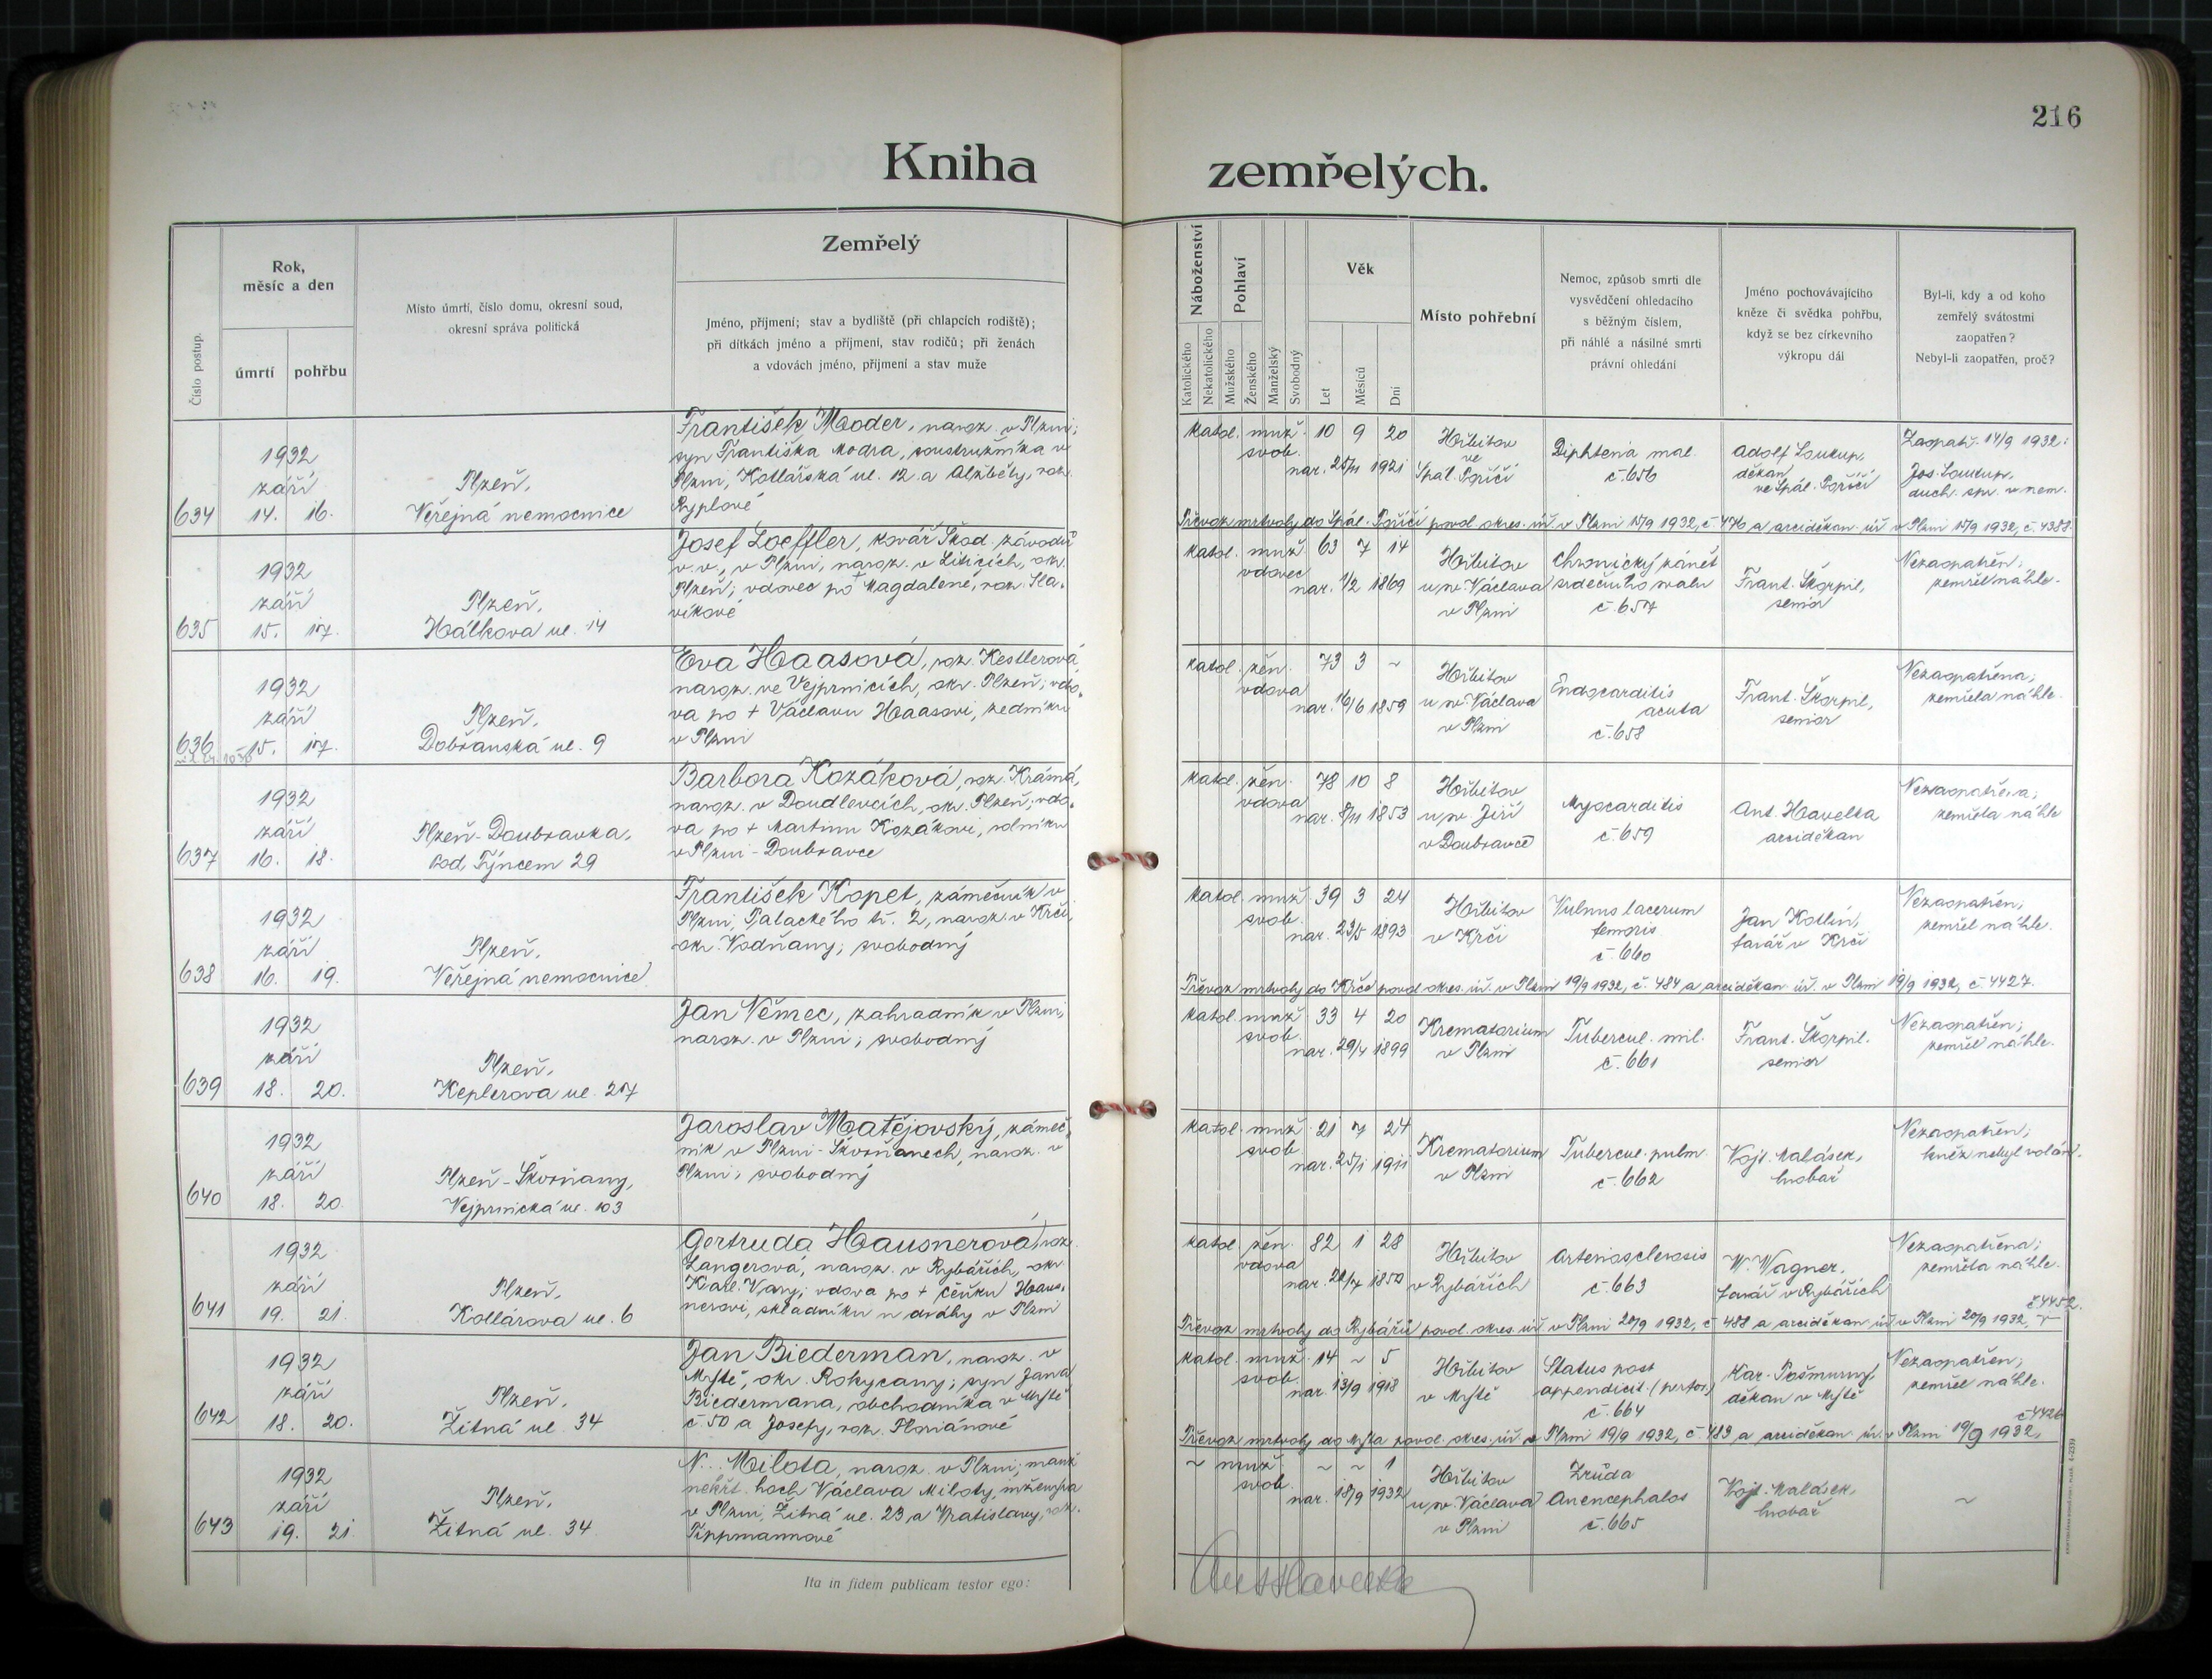 216
Kniha zemřelých.
Číslo postup.
Rok,
měsíc a den
úmrtí
pohřbu
Místo úmrtí, číslo domu, okresní soud,
okresní správa politická
Zemřelý
Jméno, příjmení; stav a bydliště (při chlapcích rodiště);
při dítkách jméno a příjmení, stav rodičů; při ženách
a vdovách jméno, příjmení a stav muže
Náboženství
Katolického
Nekatolického
Pohlaví
Mužského
Ženského
Manželský
Svobodný
Věk
Let
Měsíců
Dní
Místo pohřební
Nemoc, způsob smrti dle
vysvědčení ohledacího
s běžným číslem,
při náhlé a násilné smrti
právní ohledání
Jméno pochovávajícího
kněze či svědka pohřbu,
když se bez církevního
výkropu dál
Byl-li, kdy a od koho
zemřelý svátostmi
zaopatřen?
Nebyl-li zaopatřen, proč?
634
1932
září
14. 16.
Plzeň,
Veřejná nemocnice
František Mooder, naroz. v Plzni;
syn Františka Modra, soustružníka v
Plzni, Kotlářská ul. 12 a Alžběty, roz.
Ryplové
katol. muž. 10 9 20
svob.
nar. 25/11 1921
Hřbitov
ve
Spál. Poříčí
Diphteria mal.
č. 656
Adolf Soukup,
děkan
ve Spál. Poříčí
Zaopatř. 14/9 1932:
Jos. Soukup,
duch. spr. v nem.
Převoz mrtvoly do Spál. Poříčí povol. okres. úř. v Plzni 15/9 1932, č. 476 a arciděkan. úř. v Plzni 15/9 1932, č. 4388.
635
1932
září
15. 17.
Plzeň,
Hálkova ul. 14
Josef Loeffler, kovář Škod. závodů
v. v., v Plzni, naroz. v Liticích, okr.
Plzeň; vdovec po + Magdaleně, roz. Sla-
víkové
katol. muž. 63 7 14
vdovec
nar. 1/2 1869
Hřbitov
u sv. Václava
v Plzni
Chronický zánět
srdečního svalu
č. 657
Frant. Škorpil,
senior
Nezaopatřen;
zemřel náhle.
636
1932
září
15. 17.
Plzeň,
Dobřanská ul. 9
Eva Haasová, roz. Kestlerová,
naroz. ve Vejprnicích, okr. Plzeň; vdo-
va po + Václavu Haasovi, zedníku
v Plzni
katol. žen. 73 3 ~
vdova
nar. 16/6 1859
Hřbitov
u sv. Václava
v Plzni
Endocarditis
acuta
č. 658
Frant. Škorpil,
senior
Nezaopatřena;
zemřela náhle.
637
1932
září
16. 18.
Plzeň-Doubravka,
Pod Týncem 29
Barbora Kozáková, roz. Krámá,
naroz. v Doudlevcích, okr. Plzeň; vdo-
va po + Martinu Kozákovi, rolníku
v Plzni-Doubravce
katol. žen. 78 10 8
vdova
nar. 8/11 1853
Hřbitov
u sv. Jiří
v Doubravce
Myocarditis
č. 659
Ant. Havelka
arciděkan
Nezaopatřena;
zemřela náhle
638
1932
září
16. 19.
Plzeň,
Veřejná nemocnice
František Kopet, zámečník v
Plzni, Palackého tř. 2, naroz. v Krči,
okr. Vodňany; svobodný
katol. muž. 39 3 24
svob.
nar. 23/5 1893
Hřbitov
v Krči
Vulnus lacerum
femoris
č. 660
Jan Kotlín,
farář v Krči
Nezaopatřen;
zemřel náhle.
Převoz mrtvoly do Krče povol. okres. úř. v Plzni 19/9 1932, č. 484 a arciděkan. úř. v Plzni 19/9 1932, č. 4427.
639
1932
září
18. 20.
Plzeň,
Keplerova ul. 27
Jan Němec, zahradník v Plzni,
naroz. v Plzni; svobodný
katol. muž. 33 4 20
svob.
nar. 29/4 1899
Krematorium
v Plzni
Tubercul. mil.
č. 661
Frant. Škorpil.
senior
Nezaopatřen;
zemřel náhle.
640
1932
září
18. 20.
Plzeň-Škvrňany,
Vejprnická ul. 103
Jaroslav Matějovský, zámeč-
ník v Plzni-Škvrňanech, naroz. v
Plzni; svobodný
katol. muž. 21 7 24
svob.
nar. 25/1 1911
Krematorium
v Plzni
Tubercul. pulm.
č. 662
Vojt. Malásek,
hrobař
Nezaopatřen;
kněz nebyl volán.
641
1932
září
19. 21.
Plzeň,
Kollárova ul. 6
Gertruda Hausnerová, roz.
Langerová, naroz. v Rybářích, okr.
Karl. Vary; vdova po + Čeňku Haus-
nerovi, skladníku u dráhy v Plzni
katol. žen. 82 1 28
vdova
nar. 1850
Hřbitov
v Rybářích
Arteriosclerosis
č. 663
W. Wagner,
farář v Rybářích
Nezaopatřena;
zemřela náhle.
Převoz mrtvoly do Rybářů povol. okres. úř. v Plzni 20/9 1932, č. 488 a arciděkan. úř. v Plzni 20/9 1932, č. 4452.
642
1932
září
18. 20.
Plzeň,
Žitná ul. 34
Jan Biederman, naroz. v
Mýtě, okr. Rokycany; syn Jana
Biedermana, obchodníka v Mýtě
č. 50 a Josefy, roz. Floriánové
katol. muž. 14 ~ 5
svob.
nar. 13/9 1918
Hřbitov
v Mýtě
Status post
appendicit. (perfor.)
č. 664
Kar. Pošmurný,
děkan v Mýtě
Nezaopatřen;
zemřel náhle.
Převoz mrtvoly do Mýta povol. okres. úř. v Plzni 19/9 1932, č. 483 a arciděkan. úř. v Plzni 19/9 1932, č. 4426
643
1932
září
19. 21.
Plzeň,
Žitná ul. 34
N... Milota, naroz. v Plzni; manž.
nekřt. hoch Václava Miloty, inženýra
v Plzni, Žitná ul. 23 a Vratislavy, roz.
Tippmannové
~ muž. ~ ~ 1
svob.
nar. 18/9 1932
Hřbitov
u sv. Václava
v Plzni
Zrůda
Anencephalos
č. 665
Vojt. Malásek,
hrobař
~
Ita in fidem publicam testor ego:
Ant Havelka